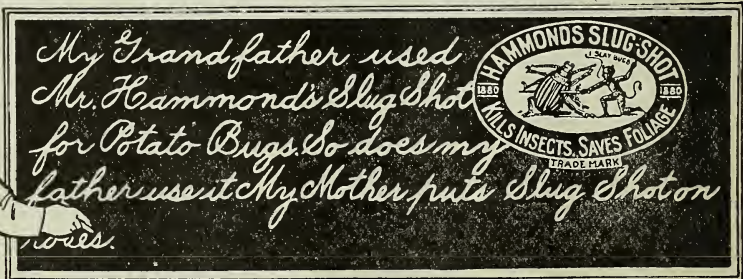 My Grandfather used
Mr. Hammond's Slug Shot
for Potato Bugs. So does my
father use it My Mother puts Slug Shot on
roses.
HAMMONDS SLUG-SHOT
I SLAY BUGS
1880 1880
KILLS INSECTS, SAVES FOLIAGE
TRADE MARK